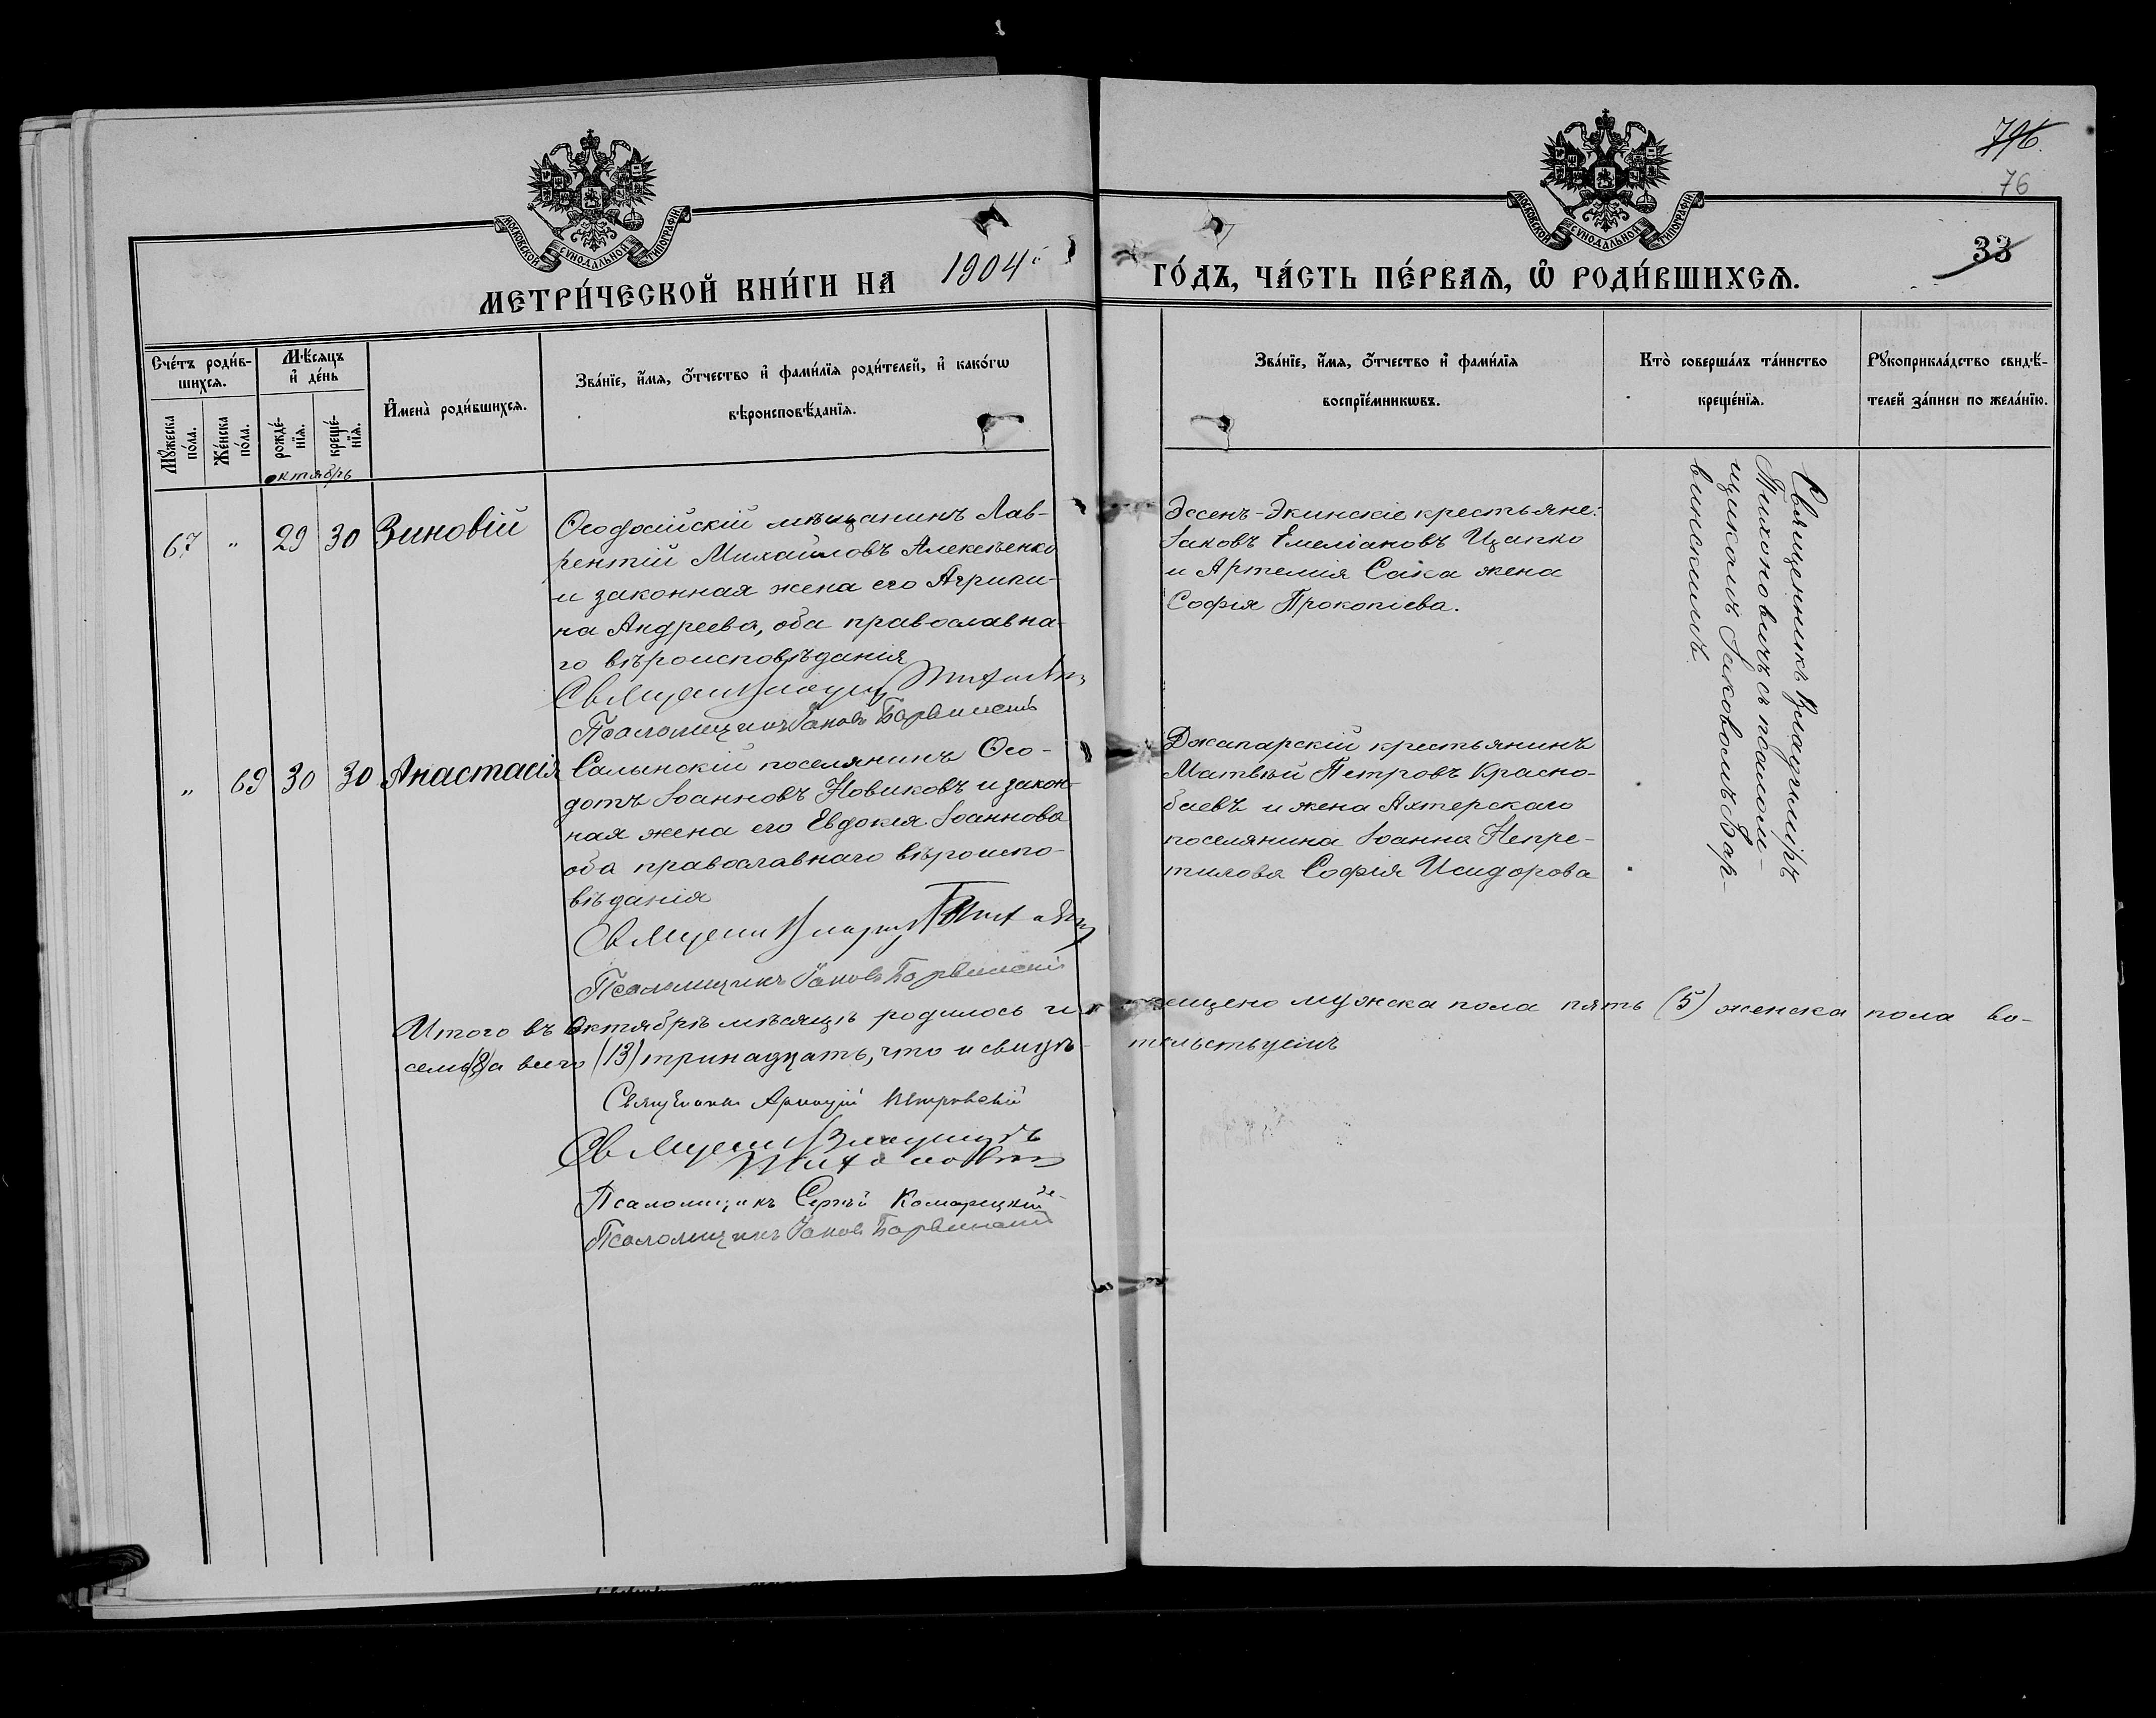 796.
76
33
МОСКОВСКОЙ СѴНОДАЛЬНОЙ ТИПОГРАФІИ
МОСКОВСКОЙ СѴНОДАЛЬНОЙ ТИПОГРАФІИ
МЕТРИ́ЧЕСКОЙ КНИ́ГИ НА 1904 ГО́ДЪ, ЧА́СТЬ ПЕ́РВАѦ, Ѽ РОДИ́ВШИХСѦ.
Сче́тъ роди́в-
шихсѧ.
Мꙋ́жеска по́ла.
Же́нска по́ла.
Мѣ́сяцъ и҆ де́нь
рожде́-нїѧ.
креще́-нїѧ.
И҆мена̀ роди́вшихсѧ.
Зва́нїе, и҆́мѧ, ѻ҆́тчество и҆ фами́лїѧ роди́телей, и҆ како́гѡ
вѣроисповѣ́данїѧ.
Зва́нїе, и҆́мѧ, ѻ҆́тчество и҆ фами́лїѧ
воспрїе́мникѡвъ.
Кто̀ соверша́лъ та́инство
креще́нїѧ.
Рꙋкоприкла́дство свидѣ́-
телей за́писи по жела́нїю.
октябрь
67 " 29 30 Зиновій
Ѳеодосійскій мѣщанинъ Лав-
рентій Михайловъ Алексѣенко
и законная жена его Агрипи-
на Андреева, оба православна-
го вѣроисповѣданія
Священ. Владимір Тихонович
Псаломщикъ Іаковъ Барвинскій
Эссенъ-Экинскіе крестьяне:
Іаковъ Емеліановъ Цапко
и Артемія Сака жена
Софія Прокопіева.
Священникъ Владиміръ
Тихоновичъ съ псалом-
щикомъ Іаковомъ Бар-
винскимъ.
" 69 30 30 Анастасія
Салынскій поселянинъ Ѳео-
дотъ Іоанновъ Новиковъ и закон-
ная жена его Евдокія Іоаннова
оба православнаго вѣроиспо-
вѣданія
Священ. Владимір Тихонович
Псаломщикъ Іаковъ Барвинскій
Джапарскій крестьянинъ
Матвѣй Петровъ Красно-
баевъ и жена Ахтерскаго
поселянина Іоанна Непре-
тилова Софія Исидорова
Итого въ Октябрѣ мѣсяцѣ родилось и крещено мужска пола пять (5) женска пола во-
семь (8) а всего (13) тринадцать, что и свидѣтельствуемъ
Священникъ Аркадій Петровскій
Священ. Владиміръ
Тихонович
Псаломщикъ Сергѣй Комарецкій
Псаломщикъ Іаковъ Барвинскій